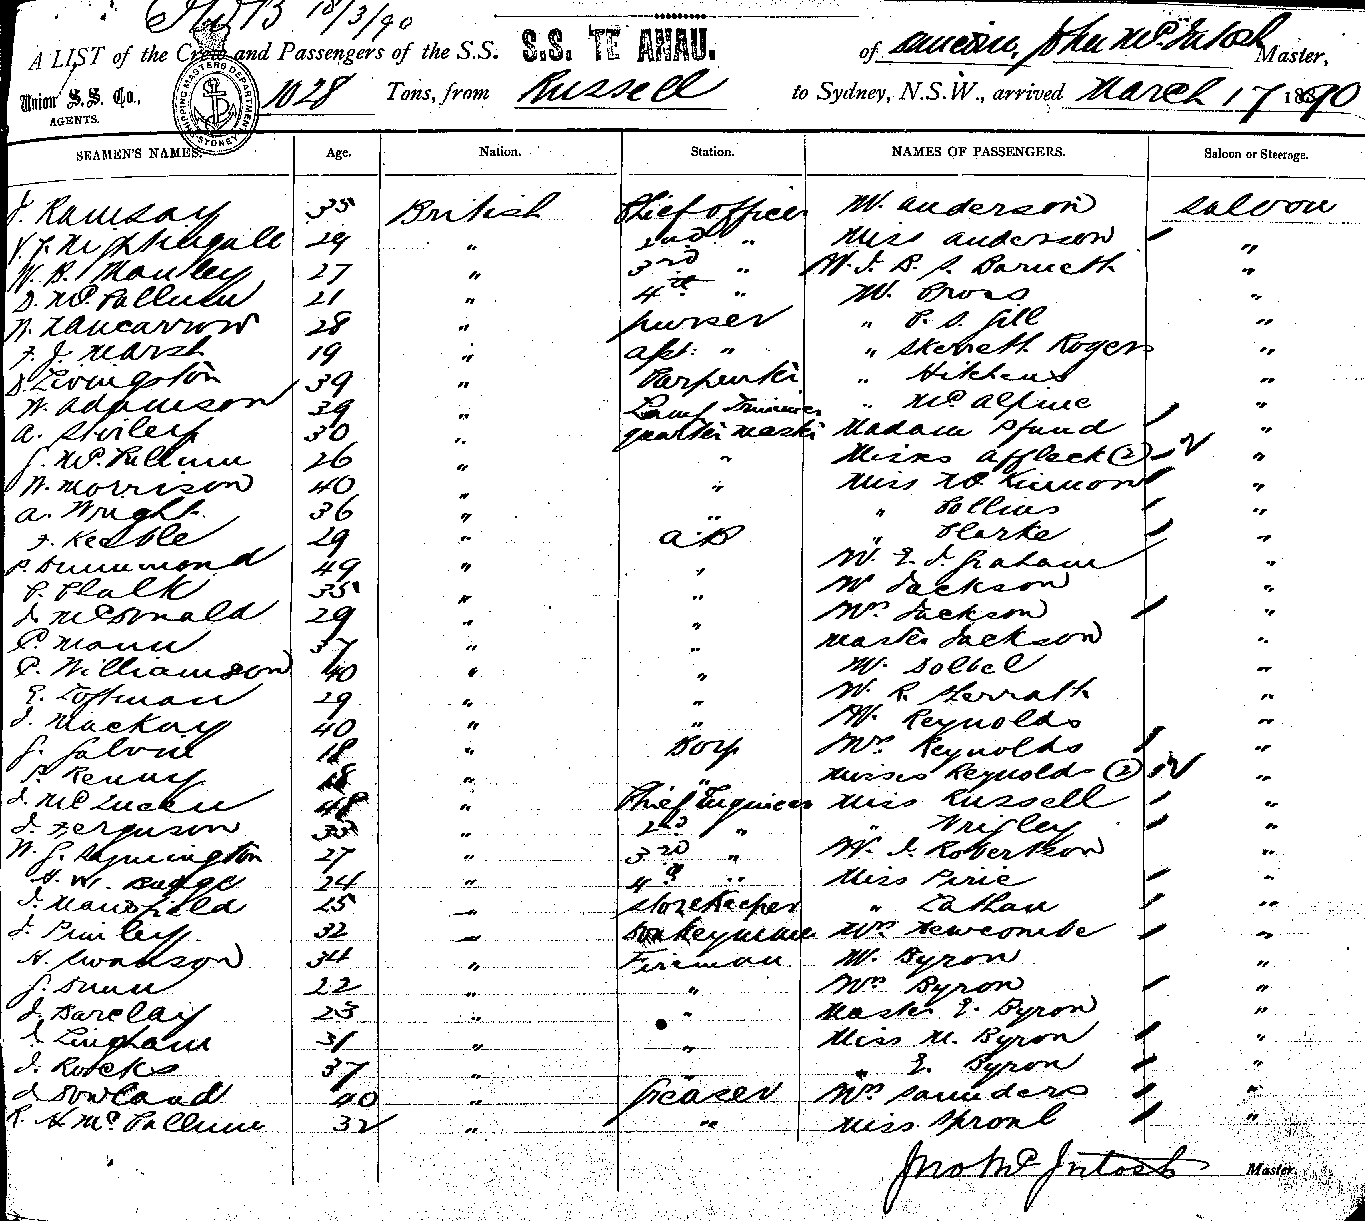 18/3/90
A LIST of the Crew and Passengers of the S.S. S.S. TE ANAU. of John McIntosh Master,
Union S.S. Co., 1028 Tons, from Russell to Sydney, N.S.W., arrived March 17 1890
AGENTS.
SHIPPING MASTERS DEPARTMENT SYDNEY
SEAMEN'S NAMES. Age. Nation. Station. NAMES OF PASSENGERS. Saloon or Steerage.
J. Ramsay 35 British Chief officer Mr. Anderson Saloon
Nightingale 29 " 2nd " Miss Anderson "
W. B. Manley 27 " 3rd " "
D. McCallum 21 " 4th " Mr. "
N. Nancarrow 28 " purser " P. S. Gill "
F. J. Marsh 19 " asst: " " Skerrett Rogers "
D. Livingston 39 " Carpenter " Hitchens "
W. Adamson 39 " Lamp Trimmer " McAlpine "
A. 30 " quarter master Madam Pfund "
McCallum 26 " " Misses Affleck (2) "
N. Morrison 40 " " Miss McKinnon "
A. Wright 36 " " " Collins "
F. Keeble 29 " A.B " Clarke "
P. Drummond 49 " " Mr. E. J. Graham "
C. Chalk 35 " " Mr Jackson "
J. McDonald 29 " " Mrs Jackson "
P. Mann 37 " " Master Jackson "
P. Williamson 40 " " Mr. "
29 " " Mr. R. "
J. Mackay 40 " " Mr. Reynolds "
18 " Boy Mrs Reynolds "
P. Kenny 18 " " Misses Reynolds (2) "
J. 48 " Chief Engineer Miss Russell "
J. Ferguson 33 " 2nd " " Wrigley "
W. G. Symington 27 " 3rd " Mr. J. Robertson "
H. W. 24 " 4th " Miss Pirie "
J. Mansfield 25 " Storekeeper " "
J. 32 " Donkeyman Mrs Newcombe "
H. Swanson 34 " Fireman Mr. Byron "
G. Dunn 22 " " Mrs Byron "
J. Barclay 23 " " Master E. Byron "
Lingham 31 " " Miss M. Byron "
J. Rocks 37 " " " E. Byron "
J. Rowland 40 " Greaser Mrs Saunders "
R. H. McCallum 32 " " Miss Sproul "
Jno McIntosh Master.